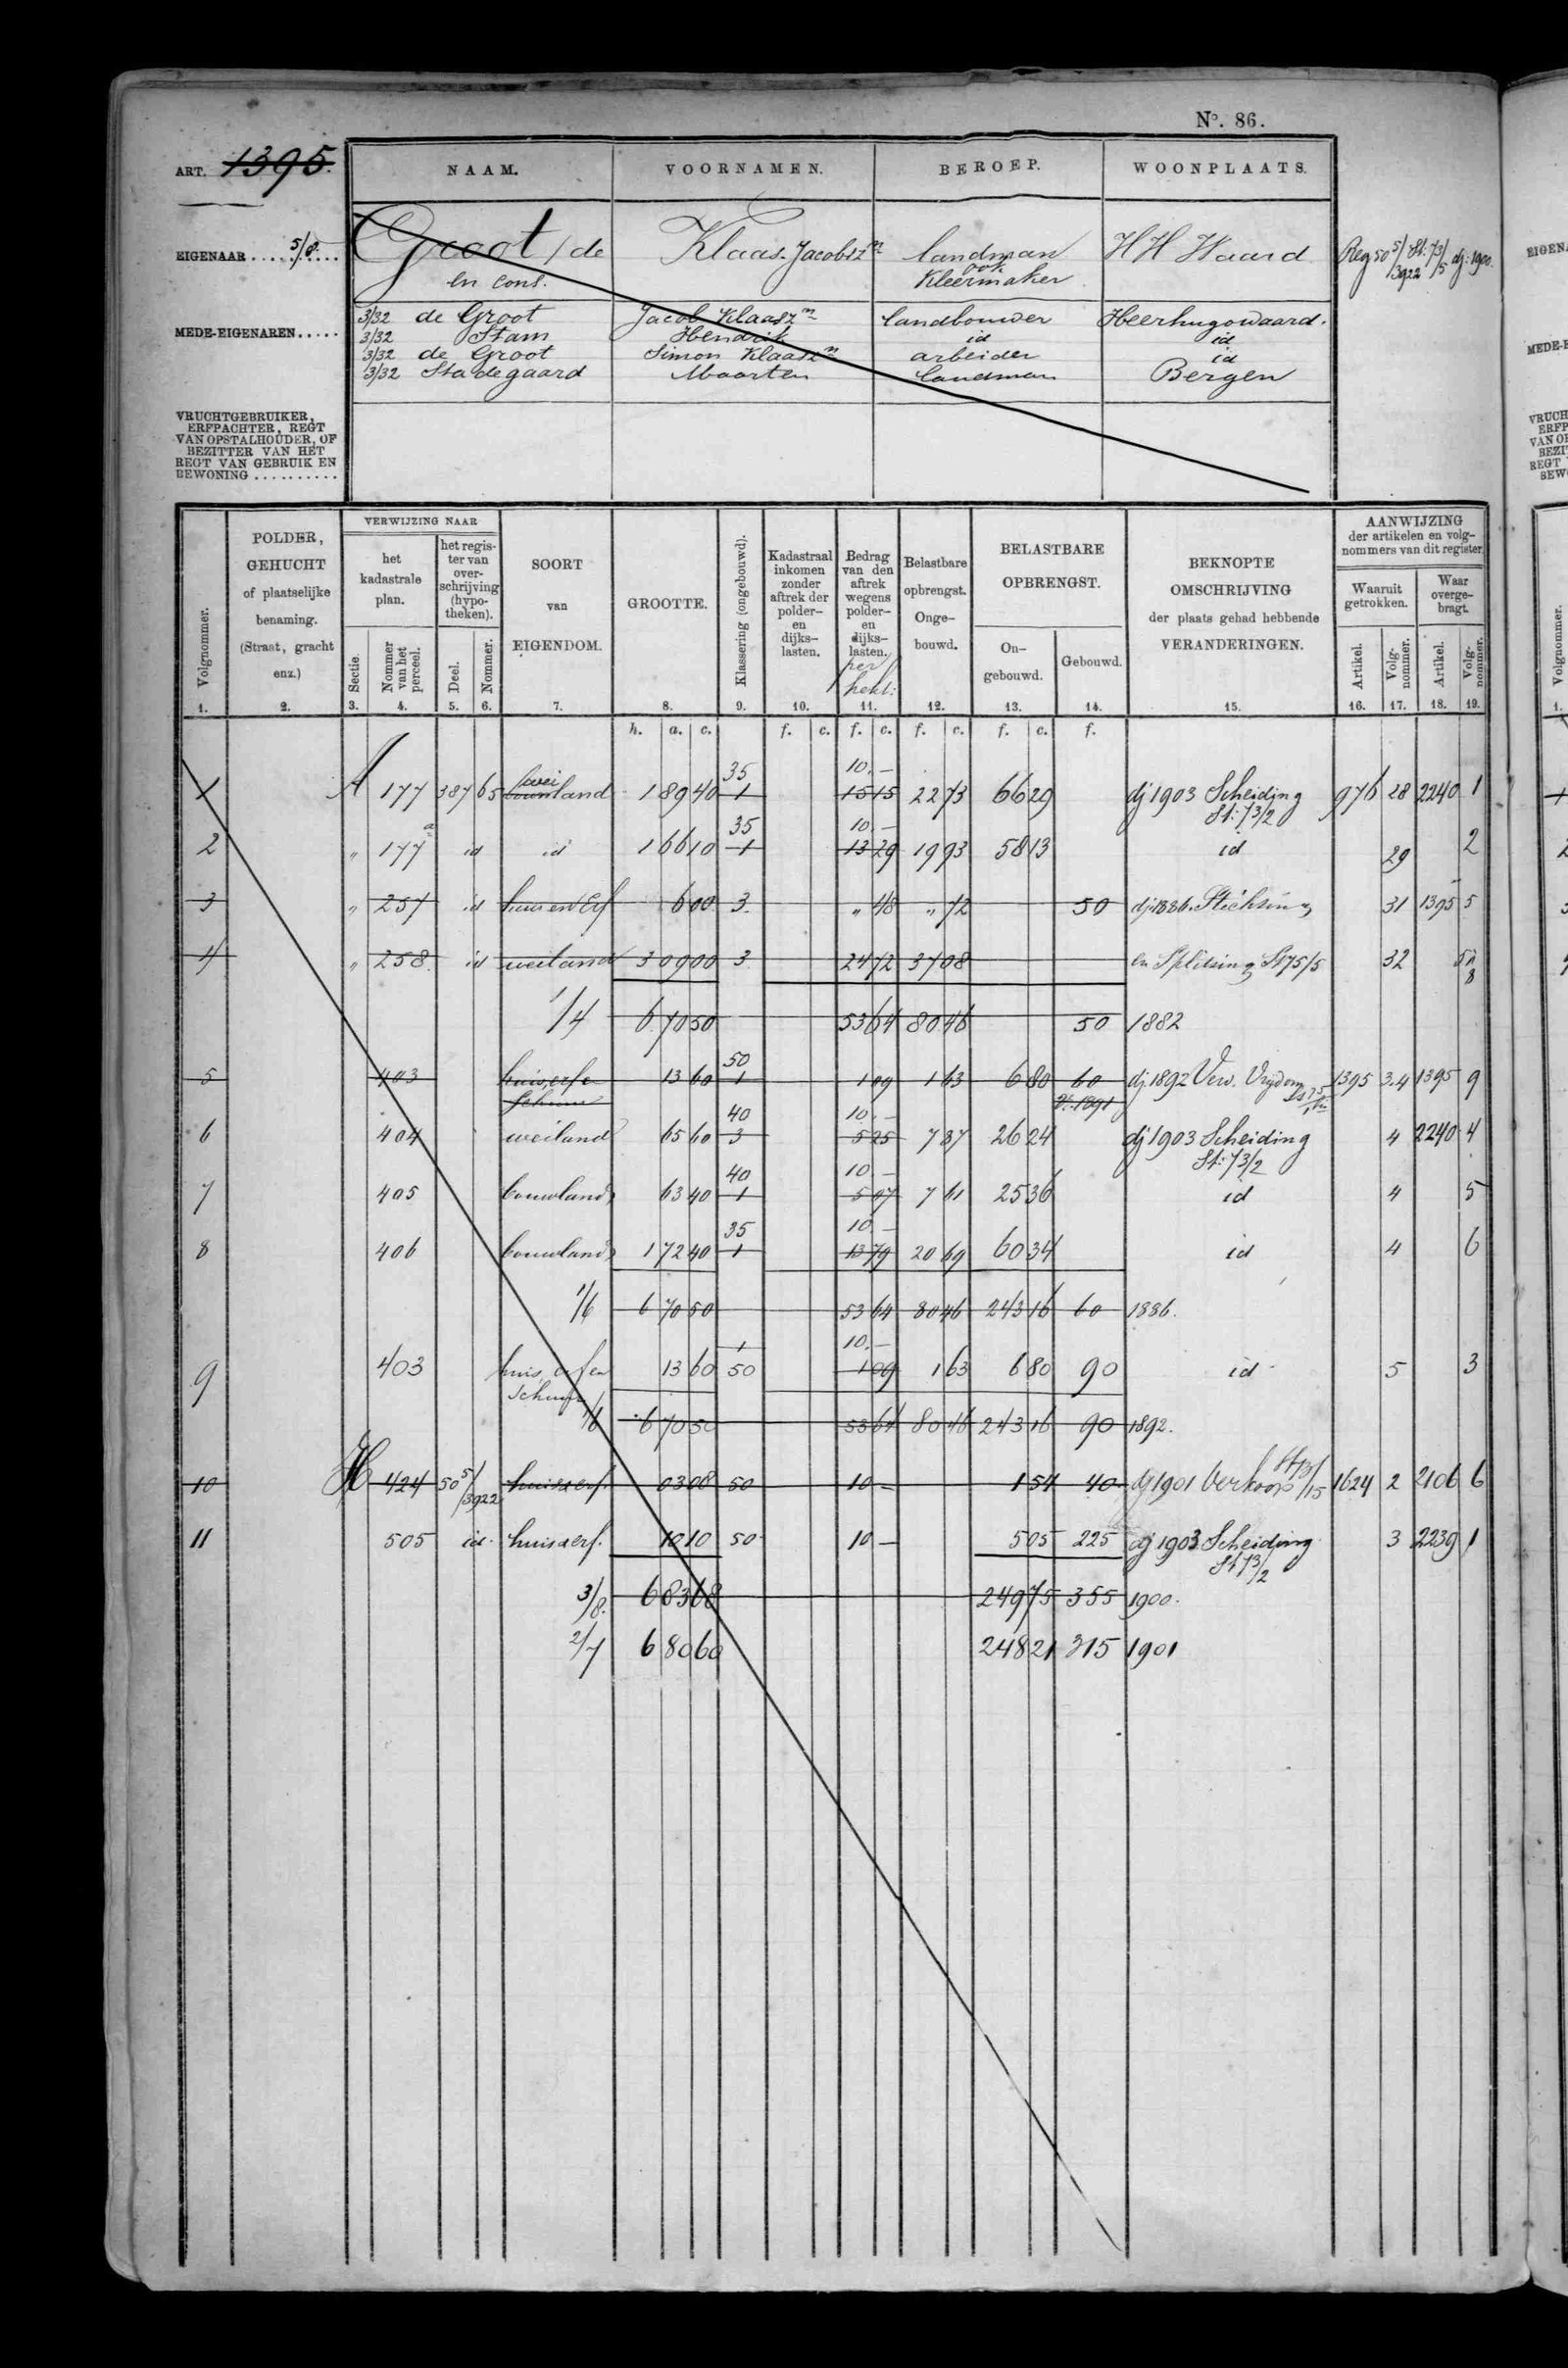 No. 86.
ART. 1395.
NAAM. VOORNAMEN. BEROEP. WOONPLAATS.
EIGENAAR . . . . . 5/8. Groot / de Klaas Jacobszn landman HH Waard Reg 50 5/3922 St: 73/5 dj: 1900.
en cons. ook Kleermaker
MEDE-EIGENAREN . . . . .
3/32 de Groot Jacob Klaaszn landbouwer Heerhugowaard.
3/32 Stam Hendrik id id
3/32 de Groot Simon Klaaszn arbeider id
3/32 Stadegaard Maarten landman Bergen
VRUCHTGEBRUIKER,
ERFPACHTER, REGT
VAN OPSTALHOUDER, OF
BEZITTER VAN HET
REGT VAN GEBRUIK EN
BEWONING . . . . . . . . . .
Volgnommer. 1.
POLDER, GEHUCHT of plaatselijke benaming. (Straat, gracht enz.) 2.
VERWIJZING NAAR
het kadastrale plan.
Sectie. 3.
Nommer van het perceel. 4.
het register van overschrijving (hypotheken).
Deel. 5.
Nommer. 6.
SOORT van EIGENDOM. 7.
GROOTTE. 8.
Klasseering (ongebouwd). 9.
Kadastraal inkomen zonder aftrek der polder- en dijks-lasten. 10.
Bedrag van den aftrek wegens polder- en dijks-lasten. per hekt: 11.
Belastbare opbrengst. Ongebouwd. 12.
BELASTBARE OPBRENGST.
On-gebouwd. 13.
Gebouwd. 14.
BEKNOPTE OMSCHRIJVING der plaats gehad hebbende VERANDERINGEN. 15.
AANWIJZING der artikelen en volgnommers van dit register.
Waaruit getrokken.
Artikel. 16.
Volg-nommer. 17.
Waar overge-bragt.
Artikel. 18.
Volg-nommer. 19.
h. a. c. f. c. f. c. f. c. f. c. f.
wei 35 10.-
1 A 177 387 65 bouwland 1 89 40 1 15 15 22 73 66 29 dj 1903 Scheiding 976 28 2240 1
St: 73/2
35 10.-
2 " 177a id id 1 66 10 1 13 29 19 93 58 13 id 29 2
3 " 257 id huis en Erf 6 00 3. " 48 " 72 50 dj. 1886. Stichting 31 1395 5
4 " 258. id weiland 3 09 00 3 24 72 37 08 en Splitsing St 75/5 32 5 à 8
1/4 6 70 50 53 64 80 46 50 1882
50
5 403 huis, erf e 13 60 1 1 09 1 63 6 80 60 dj. 1892 Verv. Vrijdom 1395 3.4 1395 9
schuur
40 10.-
6 404 weiland 65 60 3 5 25 7 87 26 24 dj 1903 Scheiding 4 2240 4
St: 73/2
40 10.-
7 405 bouwland 63 40 1 5 07 7 61 25 36 id 4 5
35 10.-
8 406 bouwland 1 72 40 1 13 79 20 69 60 34 id 4 6
1/6 6 70 50 53 64 80 46 243 16 60 1886.
1 10.-
9 403 huis, erf en 13 60 50 1 09 1 63 6 80 90 id 5 3
schuur
1/6 6 70 50 53 64 80 46 243 16 90 1892.
10 H 424 50 5/3922 huis & erf. 03 08 50 10 - 1 54 40 dj 1901 Verkoop 1624 2 2106 6
11 505 id. huis & erf. 10 10 50 10 - 5 05 225 dj 1903 Scheiding 3 2239 1
St 73/2
3/8. 6 83 68 249 75 355 1900.
2/7 6 80 60 248 21 315 1901